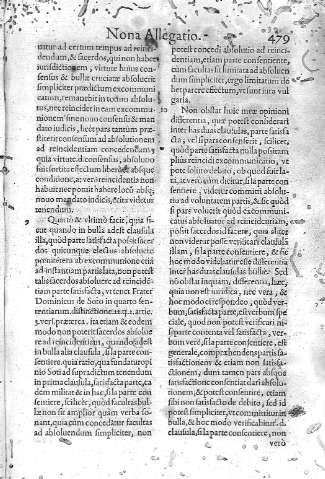 Nona Allegatio. 479
tutur ad certum tempus ad reinci-
dendam, & sacerdos, qui non habet
iurisdictionem, virtute huius con-
sensus & bullæ cruciatæ absoluerit
simpliciter prædictum excommuni
catum, remanebit in totum absolu-
tus, nec reincidet in eam excommu
nicationem
dato iudicis, hæc pars tantùm præ-
stiterit consensum ad absolutionem
ad reincidentiam concedendam,
quia virtute. d. consensus, absolutio
fuit sortita effectum liberè & absque
conditione, at verò reincidentia non
habuit nec potuit habere locum absque
nouo mandato iudicis, & ita videtur
tenendum.
Quintò & vltimò facit, quia si-
cut quando in bulla adest clausula
illa, quòd parte satisfacta possit sacer
dos quicunque electus absoluere
pœnitentem ab excommunicatione etiã
ad instantiam partis lata, non potest
talis sacerdos absoluere ad reinciden
tiam parte satisfacta, vt tenet Frater
Dominicum de Soto in quarto sen-
tentiarum, distinctione. 22. q. 2. artic.
3. vers. præterea, ita etiam & eodem
modo non poterit sacerdos absolue
re ad reincidentiam, quando est
in bulla alia clausula, si la parte con-
sentiere. quia ratio, qua fundatur opi
nio Soti ad supradictum tenendum
in prima clausula, satisfacta parte, ea
dem militat & in hac, si la parte con
sentiere, scilicet, quòd facultas bul-
læ non sit amplior quàm verba so-
nant, quia cùm concedatur facultas
ad absoluendum simpliciter, non
potest concedi absolutio ad reinci-
dentiam, etiam parte consentiente,
cùm facultas sit limitata ad absoluen
dum simpliciter, ergo limitatum de
bet parere effectum, vt sunt iura vul
garia.
Non obstat huic meæ opinioni
differentia, quæ potest considerari
inter has duas clausulas, parte satisfa
cta, vel si parte consenserit, scilicet,
quòd parte satisfacta nulla potest am
plius reincidi excommunicatio, vt
pote soluto debito, ob quod fuit la-
ta, at verò quando dicitur, si la parte con
sentiere, videtur committi absolu-
tio ad voluntatem partis, & sic quòd
si pars voluerit quòd excommuni-
catus absoluatur ad reincidentiam,
possit sacerdos id facere, quia aliter
non viderar posse verificari clausula
illam, si la parte consentiere, & sic
hoc modo videbatur esse differentia
inter has duas clausulas bullæ. Sed
nõ obstat inquam, differentia hæc,
quia non est iuridica, nec vera, &
hoc modo ei respondeo, quòd ver-
bum, satisfacta parte, est verbum spe
ciale, quod non potest verificari ni-
si parte contenta vel satisfacta, ver-
bum verò, si la parte consentiere, est
generale, comprehendens partis sa-
tisfactionem & etiam non satisfa-
ctionem, dum tamen pars absque
satisfactione consentiat dari absolu-
tionem, & potest consentire, etiam
sibi non satisfacto de debito, sed id
potest simpliciter, vt committitur in
bulla, & hoc modo verificabitur. d.
clausula, si la parte consentiere, non
verò